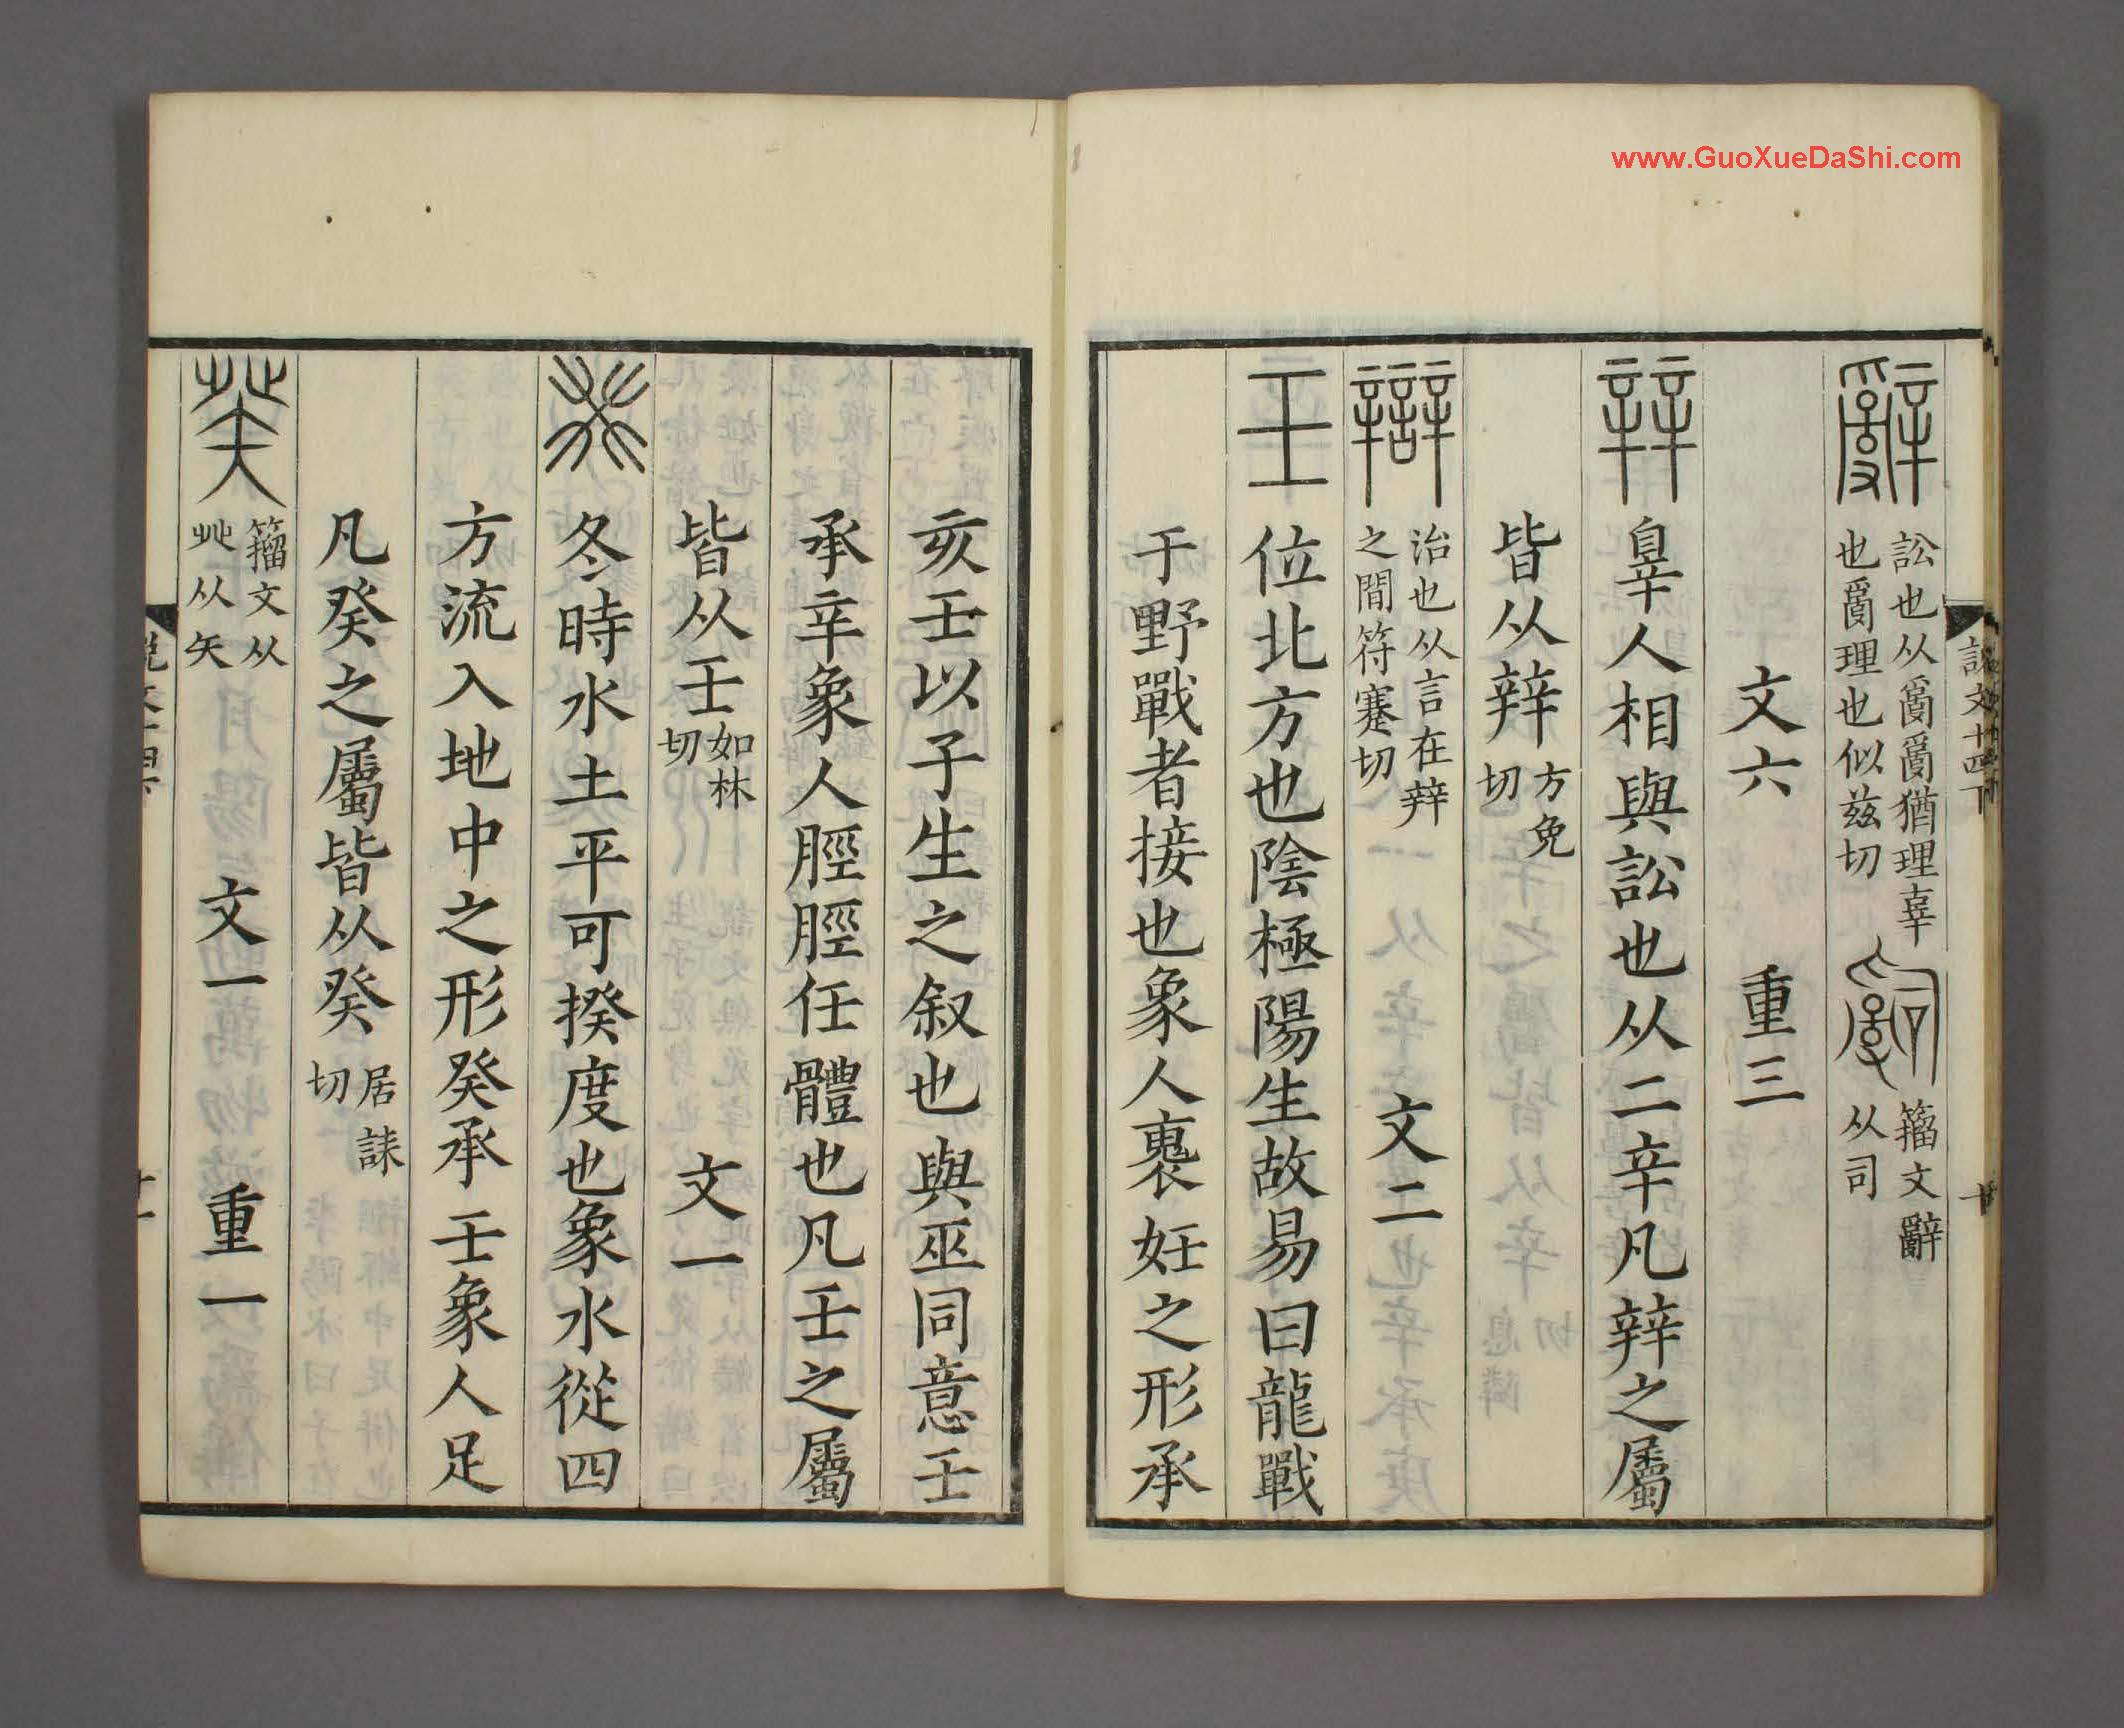 www.GuoXueDaShi.com
說文十四下
十
辭 訟也从𤔔𤔔猶理辜也𤔔理也似兹切 𤔲 籀文辭从司
文六 重三
辡 辠人相與訟也从二辛凡辡之屬
皆从辡方免切
辯 治也从言在辡之間符蹇切 文二
壬 位北方也陰極陽生故易曰龍戰
于野戰者接也象人褢妊之形承
亥壬以子生之叙也與巫同意壬
承辛象人脛脛任體也凡壬之屬
皆从壬如林切 文一
癸 冬時水土平可揆度也象水從四
方流入地中之形癸承壬象人足
凡癸之屬皆从癸居誄切
籀文从癶从矢 文一 重一
十一